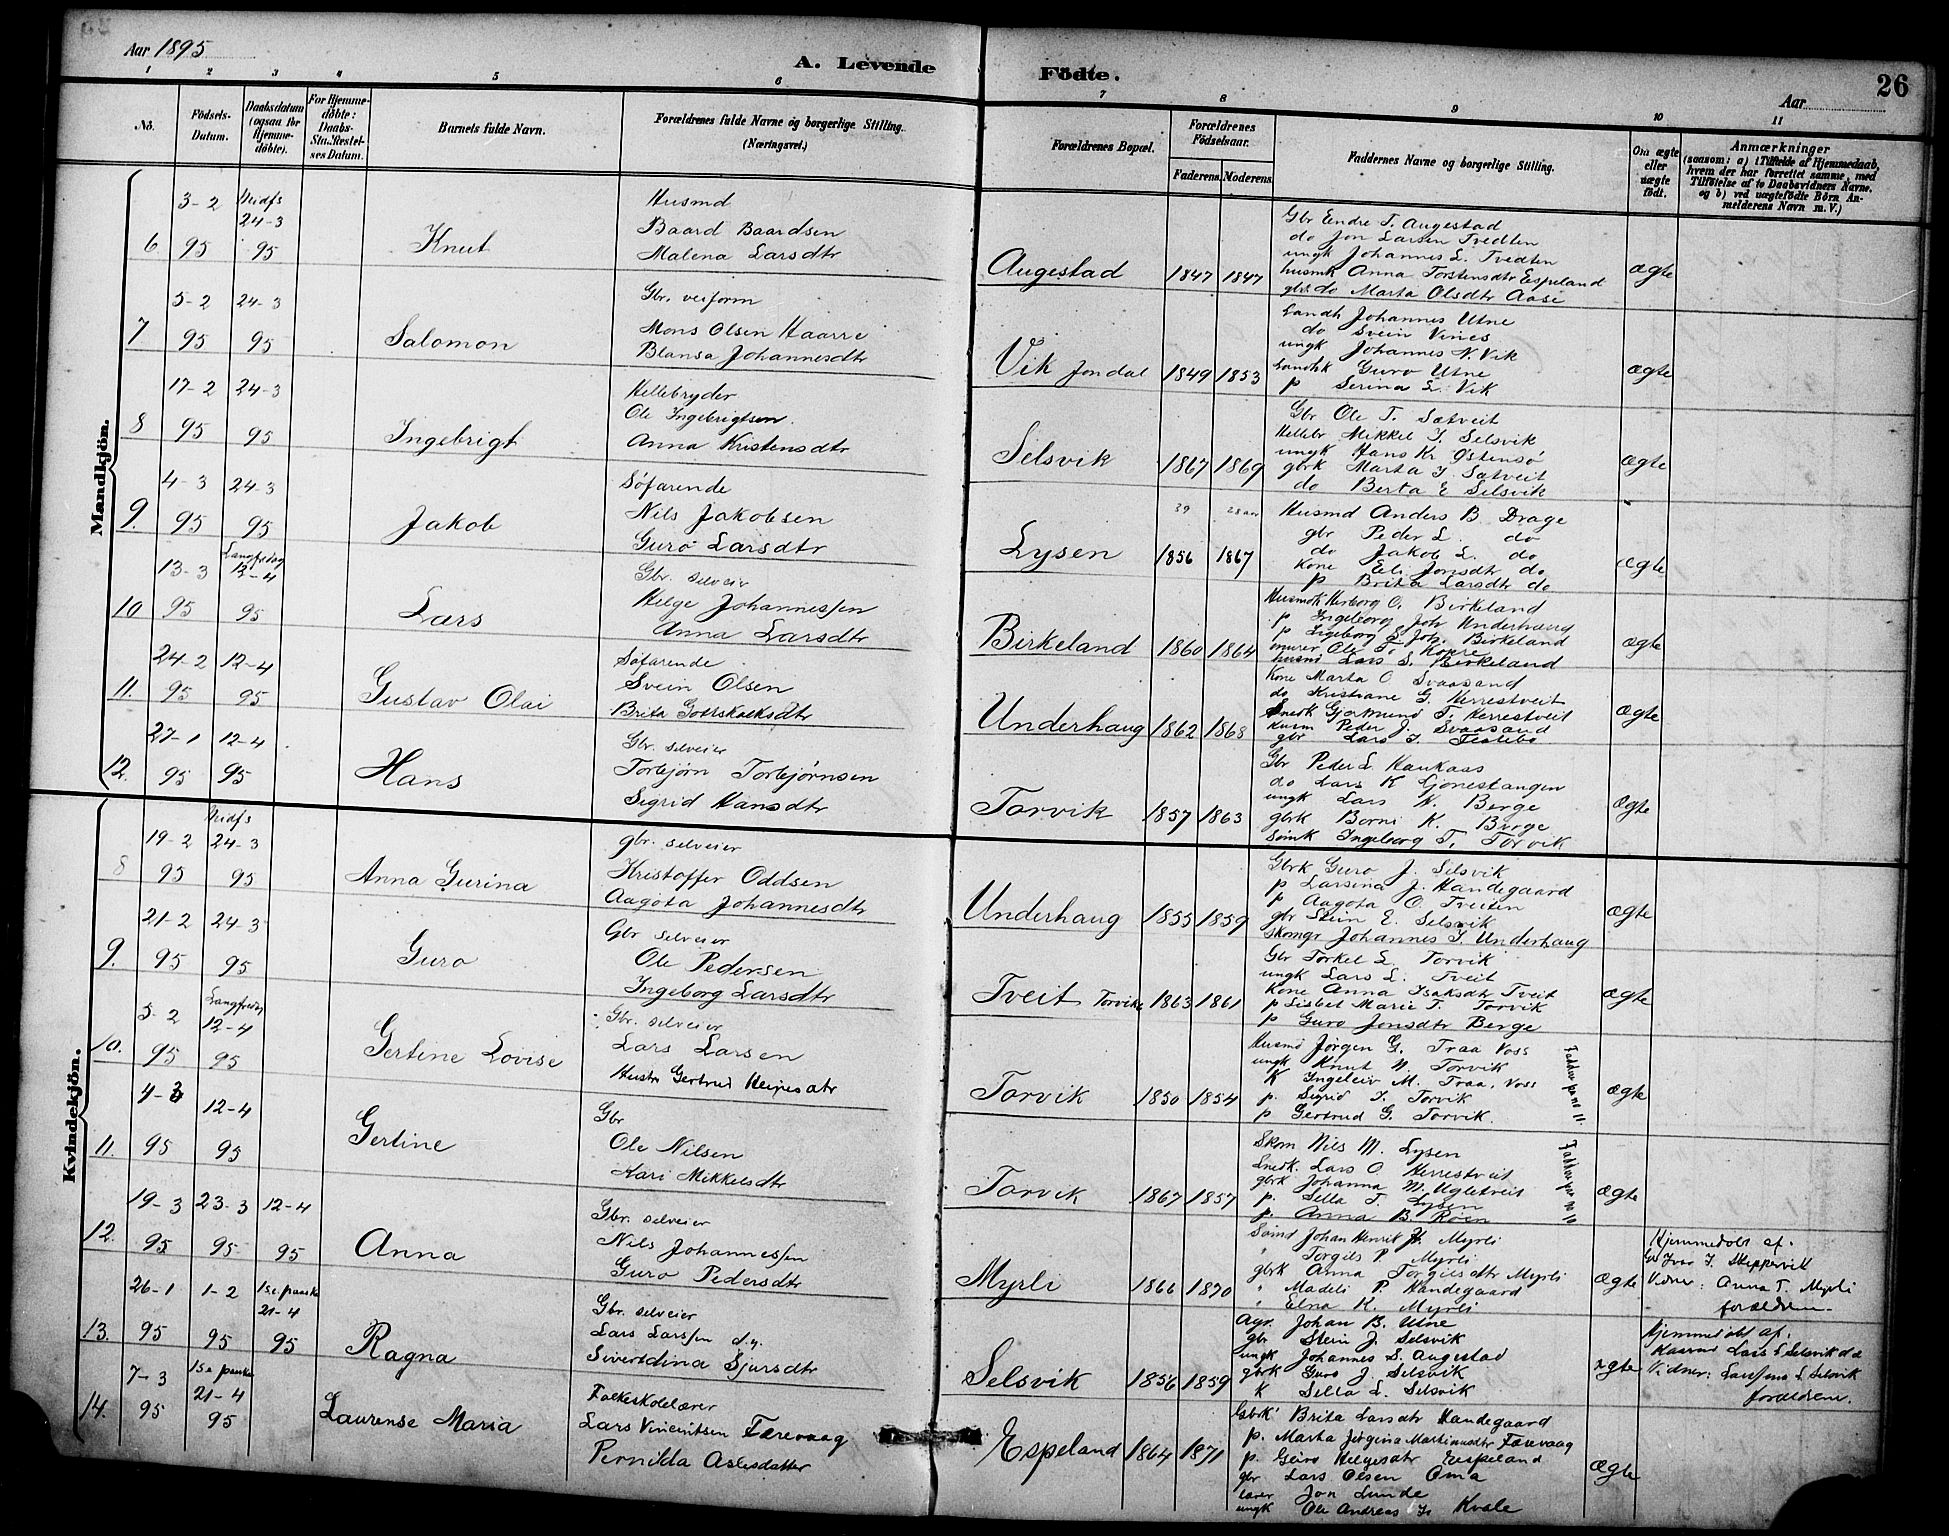 Aar 1895
A. Levende
Födte.
26
Aar
1 2 3 4 5 6 7 8 9 10 11
No.
Födsels-Datum.
Daabsdatum (ogsaa for Hjemmedöbte).
For Hjemmedöbte: Daabs-Sta.Festelses Datum.
Barnets fulde Navn.
Forældrenes fulde Navne og borgerlige Stilling. (Næringsvei.)
Forældrenes Bopæl.
Forældrenes Födselsaar.
Faderens. Moderens.
Faddernes Navne og borgerlige Stilling.
Om ægte eller uægte födt.
Anmærkninger
(saasom: a) i Tilfælde af Hjemmedaab,
hvem der har forrettet samme, med
Tilföielse af to Daabsvidners Navne,
og b) ved uægtefödte Börn An-
melderens Navn m. V.)
Mandkjön.
6. 3-2 95 Midfs 24-3 95 Knut
Husmd
Baard Baardsen
Malena Larsdtr
Augestad 1847 1847
Gbr Endre T. Augestad
do Jon Larsen Tvedten
ungk Johannes L. Tvedten
husmk Anna Torstensdtr Espeland
gbr do Marta Olsdtr Aase
ægte
7 5-2 95 24-3 95 Salomon
Gbr. veiform
Mons Olsen Haarre
Blansa Johannesdtr
Vik Jondal 1849 1853
Landh Johannes Utne
do Svein Vines
ungk Johannes N. Vik
Landhk Guro Utne
p Serina L. Vik
ægte
8 17-2 95 24-3 95 Ingebrigt
Hellebryder
Ole Ingebrigtsen.
Anna Kristensdtr
Selsvik 1867 1869
Gbr Ole T. Sætveit
Hellebr Mikkel J. Selsvik
ungk Hans Kr Østensø
gbrk Marta J. Sætveit
do Berta E Selsvik
ægte
9. 4-3 95 24-3 95 Jakob
Søfarende
Nils Jakobsen
Guro Larsdtr
Lysen 39 28 aar 1856 1867
Husmd Anders B. Drage
gbr Peder L. do
do Jakob L. do
Kone Eli Jonsdtr do
p Brita Larsdtr do
ægte
10 13-3 95 Langfredag 12-4 95 Lars
Gbr. selveier
Helge Johannessen
Anna Larsdtr
Birkeland 1860 1864
Husmdk Herborg O. Birkeland
p Ingeborg Joh Underhaug
p Ingeborg L Joh. Birkeland
murer Ole T. Kopre
husmd Lars S. Birkeland
ægte
11. 24-2 95 12-4 95 Gustav Olai
Søfarende
Svein Olsen
Brita Gotskalksdtr
Underhaug 1862 1868
Kone Marta O Svaasand
do Kristiane G. Herrestveit
Snedk Gjermund T. Herrestveit
husm Peder J. Svaasand
gbr Lars J.
ægte
12. 27-1 95 12-4 95 Hans
Gbr. selveier
Torbjørn Torbjørnsen
Sigrid Hansdtr
Torvik 1857 1863
Gbr Peder L. Haukaas
do Lars K Gjonestangen
ungk Lars K. Berge
gbrk Borni K. Berge
sømk Ingeborg T. Torvik
ægte
Kvindekjön.
8 19-2 95 Midfs 24-3 95 Anna Gurina
gbr. selveier
Kristoffer Oddsen
Aagota Johannesdtr
Underhaug 1855 1859
Gbrk Guro J. Selsvik
p Larsina J. Handegaard
p Aagota O. Tveiten
gbr Stein E. Selsvik
skomgr Johannes J. Underhaug
ægte
9. 21-2 95 24-3 95 Guro
Gbr selveier
Ole Pedersen
Ingeborg Larsdtr
Tveit Torvike 1863 1861
Gbr Torkel L. Torvik
ungk Lars L. Tveit
Kone Anna Isaksdtr Tveit
p Lisbet Marie T. Torvik
p Guro Jonsdtr Berge
ægte
10. 5-2 95 Langfredag 12-4 95 Gertine Lovise
Gbr. selveier
Lars Larsen
Hustr Gertrud Helgesdtr
Torvik 1850 1854
Husmd Jørgen G. Traa Voss
ungk Knut N. Torvik
K Ingeleiv M. Traa, Voss
p. Sigrid J. Torvik
p Gertrud G. Torvik.
Faddere paa no 11.
ægte
11. 4-3 95 12-4 95 Gertine
Gbr
Ole Nilsen
Kari Mikkelsdtr
Torvik 1867 1857
Skom Nils M. Lysen
Snedk. Lars O Herrestveit
gbrk Johanna M. Ugletveit
p. Sella T. Lysen
p. Anna B. Røen
Faddere paa no 10
ægte
12. 19-3 95 23-3 95 12-4 95 Anna
Gbr. selveier
Nils Johannessen
Guro Pedersdtr
Myrli 1866 1870
Sømd Johan Henrik Jh. Myrli
" Torgils P. Myrli
gbrk Anna Torgilsdtr Myrli
" Madeli P. Handegaard
" Elna K. Myrli
ægte
Hjemmedøbt af.
Gbr Ivar J. Skeppervik
Vidner: Anna T. Myrli
forældrene
13. 26-1 95 1-2 95 1se paaske 21-4 95 Ragna
Gbr. selveier
Lars Larssen d.y.
Sivertdina Sjursdtr
Selsvik 1856 1859
Agr. Johan B. Utne
gbr Stein J. Selsvik
ungk Johannes S. Augestad
gbrk Guro J. Selsvik
k Sella L. Selsvik
ægte
Hjemmedøbt af.
Lars L Selsvik d.æ
Vidner: Larsina L Selsvik
forældrene.
14. 7-3 95 1se paaske 21-4 95 Laurense Maria
Folkeskolelærer
Lars Vincentsen Færevaag
Pernilda Aslesdatter
Espeland 1864 1871
Gbrk Brita Larsdtr Handegaard
p. Marta Jørgina Martinusdtr Færevaag
p. Guro Helgesdtr Espeland
gbr Lars Olsen Oma
lærer Jon Lunde
ungk Ole Andreas Js Kvale
ægte